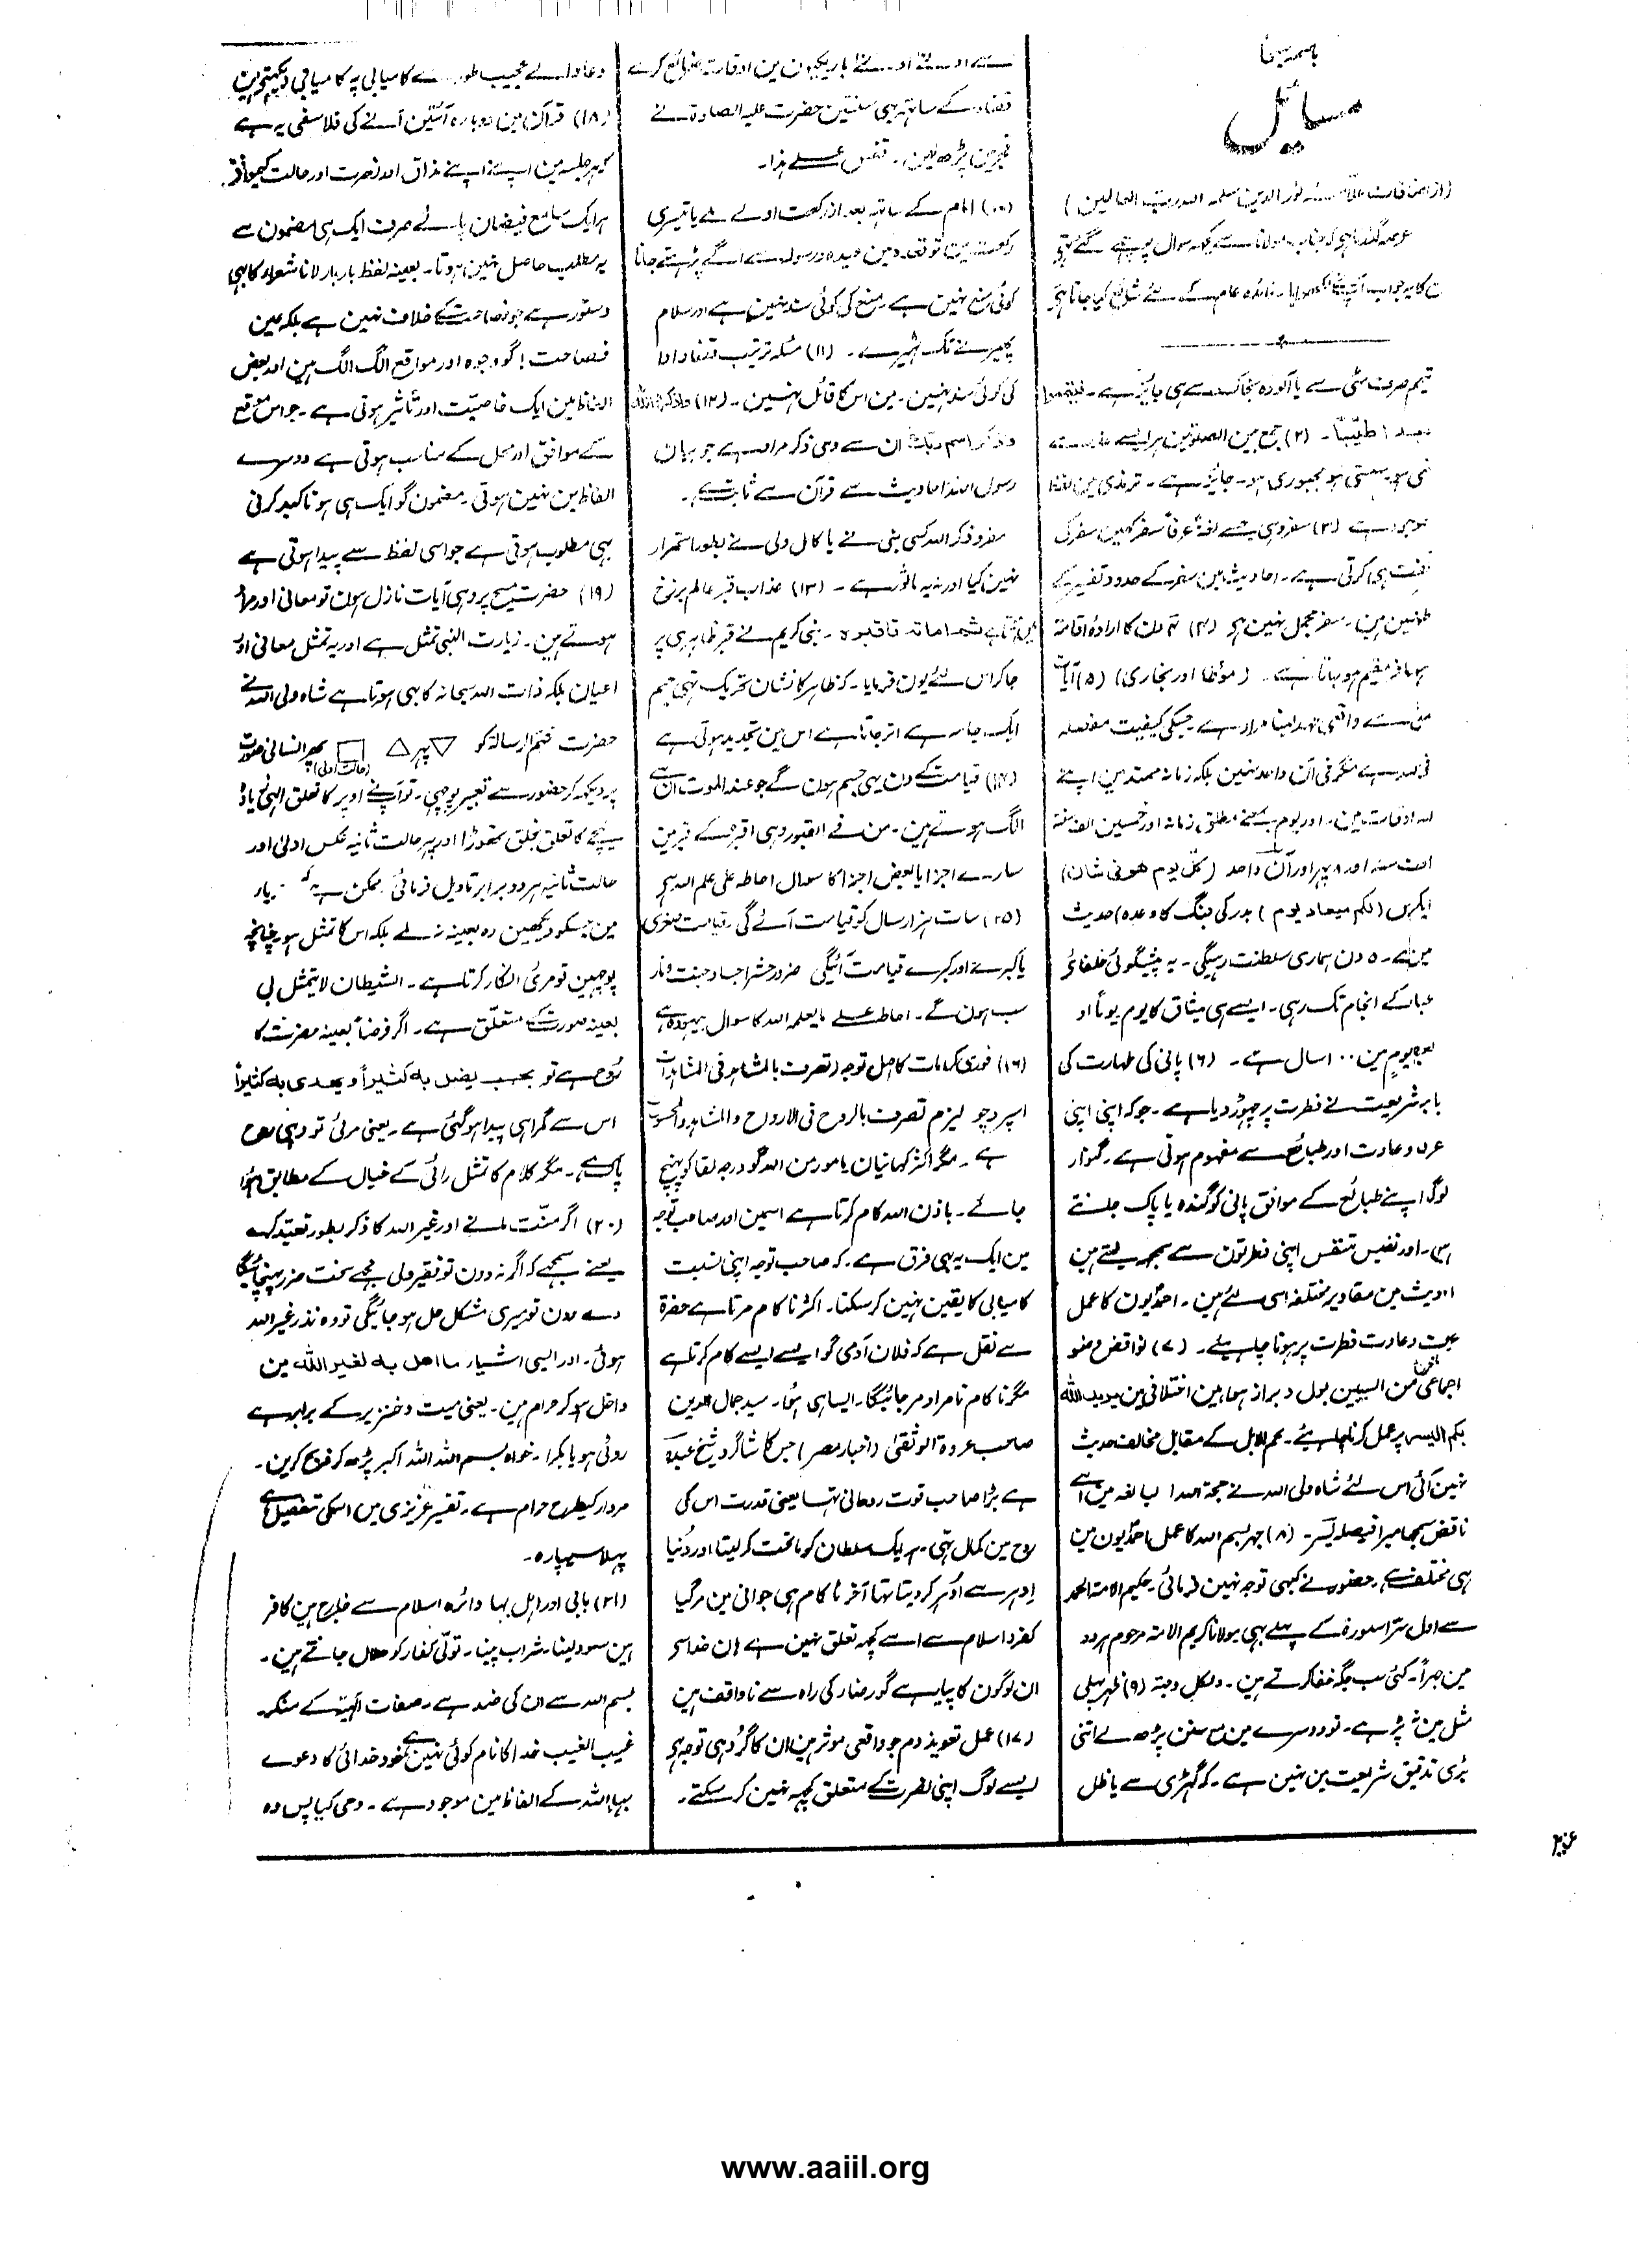 مسایل
(از افاضات علامہ نور الدین سلمہ اللہ رب العالمین)
عرصہ گذرا ہے کہ جناب مولانا سے کچھ سوال پوچھے گئے تھے
کا یہ جواب آپنے لکھوایا۔ فائدہ عام کے لئے شائع کیا جاتا ہے
تیمم صرف مٹی سے یا آلودہ بخاک سے ہی جائیز ہے۔
طیّبا۔ (۲) جمع بین الصلوٰتین
ہو مجبوری ہو۔ جائیز ہے۔ ترمذی مین لفظ
موجود ہے (۳) سفر وہی جسے لغۃً عرفاً سفر کہین سفر کی
ہی کرتی ہے۔ احادیث مین سفر کے حدود
نہین مین۔ سفر مجمل نہین ہے (۴) ۴ دن کا ارادہ اقامت
مسافر مقیم ہو جاتا ہے۔ (مؤطا اور بخاری) (۵) آیات
سے واقعی عہد لینا مراد ہے جسکی کیفیت مفصلہ
ہے مگر فی آن واحد نہین بلکہ زمانہ ممتد مین اپنے
اوقات مین۔ اور یوم بمعنے مطلق زمانہ اور خمسین الف سنۃ
الف سنہ اور ۸ پہر اور آن واحد (کل یوم ھو فی شان)
ایکبرس (لکم میعاد یوم) بدر کی جنگ کا وعدہ) حدیث
مین ہے۔ ۵ دن ہماری سلطنت رہیگی۔ یہ پیشگوئی خلفائے
عباس کے انجام تک رہی۔ ایسے ہی میثاق کا یوم یوماً او
بعض یوم مین ۱۰۰ اسال ہے۔ (۶) پانی کی طہارت کی
بابر شریعت نے فطرت پر چھوڑ دیا ہے۔ جو کہ اپنی اپنی
عرف و عادت اور طبائع سے مفہوم ہوتی ہے۔ گنوار
لوگ اپنے طبائع کے موافق پانی کو گندہ یا پاک جانتے
ہیں۔ اور نفیس متنفس اپنی فطرتون سے سمجھ لیتے ہین
احادیث مین مقادیر مختلفہ اسی لئے ہین۔ احمدیون کا عمل
و عادت فطرت پر ہونا چاہیئے۔ (۷) نواقض وضو
اجماعی من السبیلین بول و براز ہما مین اختلافی مین یرید اللہ
بکم الیسر پر عمل کرنا چاہیئے۔ لحم الابل کے مقابل مخالف حدیث
نہین آئی اس لئے شاہ ولی اللہ نے حجۃ اللہ البالغہ مین اسے
ناقض سمجھا میرا فیصلہ (۸) جہر بسم اللہ کا عمل احمدیون مین
ہی مختلف ہے حضور نے کبھی توجہ نہین فرمائی۔ حکیم الامۃ الحمد
سے اول سرّا سورۃ کے پہلے بھی مولانا کریم الامۃ مرحوم ہر دو
مین جہراً۔ کئی سب جگہ خفا کرتے ہین۔ ولکل وجہۃ (۹) ظہر پہلی
مثل مین پڑہے۔ تو دوسرے مین سنن پڑھ لے اتنی
بڑی تدقیق شریعت مین نہین ہے۔ کہ گھڑی سے یا ظل
سے باریکیون مین اوقات ضائع کرے
قضاء کے ساتھ ہی سنتین حضرت علیہ الصلوۃ نے
فجر مین پڑھ لین۔ فقس علےٰ ہذا۔
(۱۰) امام کے ساتھ بعد از رکعت اولے یا تیسری
رکعت مین توقعہ مین عبدہ و رسولہ سے آگے پڑہتے جانا
کوئی منع نہین ہے۔ منع کی کوئی سند نہین ہے اور سلام
پھیرنے تک ٹھہرے۔ (۱۱) مسئلہ ترتیب قضاء و ادا
کی کوئی سند نہین۔ مین اس کا قائل نہین۔ (۱۲)
واذکر اسم ربک ان سے وہی ذکر مراد ہے جو بیان
رسول اللہ احادیث سے قرآن سے ثابت ہے۔
مفرد ذکر اللہ کسی نبی نے یا کامل ولی نے بطور استمرار
نہین کیا اور نہ یہ ماثور ہے۔ (۱۳) عذاب قبر عالم برزخ
ثم اماتہ فاقبرہ۔ نبی کریم نے قبر ظاہری پر
جاکر اس لئے یون فرمایا۔ کہ ظاہر کا نشان تحریک تھی جسم
ایک جامہ ہے اتر جاتا ہے اس مین تجدید ہوتی ہے
(۱۴) قیامت کے دن یہی جسم ہون گے جو عند الموت ان سے
الگ ہوتے ہین۔ من فے القبور وہی اقبرہ کے قبر مین
سارے اجزا یا بعض اجزا کا سوال احاطہ علی علم اللہ ہے
(۱۵) سات ہزار سال کو قیامت آئے گی۔ قیامت صغری
یا کبرے اور کبرے قیامت آئیگی ضرور حشر اجساد و جنت و نار
سب ہون گے۔ احاطہ علے ما یعلمہ اللہ کا سوال بیہودہ ہے
(۱۶) فوری کرامات کا اصل توجہ (تصرف بالمشاہد فی المشاہدات
اسپرچو لیزم تصرف بالروح فی الارواح والمشاہد والمحسوسات
ہے۔ مگر اکثر کہانیان یا مور من اللہ گو درجہ لقا کو پہنچ
جائے۔ باذن اللہ کام کرتا ہے اسمین اور صاحب توجہ
مین ایک یہ بھی فرق ہے۔ کہ صاحب توجہ اپنی نسبت
کامیابی کا یقین نہین کر سکتا۔ اکثر ناکام مرتا ہے حضرۃ
سے نقل ہے کہ فلان آدمی گو ایسے ایسے کام کرتا ہے
مگر ناکام نامراد مر جائیگا۔ ایسا ہی ہوا۔ سید جمال الدین
صاحب عروۃ الوثقیٰ (اخبار مصر) جس کا شاگرد شیخ عبدہ
ہے بڑا صاحب قوت روحانی تھا یعنی قدرت اس کی
روح مین کمال تھی۔ ہر ایک سلطان کو ماتحت کر لیتا اور دنیا
ادہر سے اُدہر کر دیتا تھا آخر ناکام ہی جوانی مین مر گیا
کفر و اسلام سے اسے کچھ تعلق نہین ہے ان خدا سے
ان لوگون کا پیار ہے گو رضاء کی راہ سے ناواقف ہین
(۱۷) عمل تعویذ دم جو واقعی موثر ہین ان کا گُر وہی توجہ ہے
ایسے لوگ اپنی نصرت کے متعلق کچھ نہین کر سکتے۔
دعا والے عجیب طور سے کامیابی پہ کامیابی دیکھتے ہین
(۱۸) قرآن مین دوبارہ آئیتین آنے کی فلاسفی یہ ہے
کہ ہر جلسہ مین اپنے اپنے مذاق اور نصرت اور حالت کے موافق
ہر ایک سامع فیضان پائے صرف ایک ہی مضمون سے
یہ مطلب حاصل نہین ہوتا۔ بعینہ لفظ بار بار لانا شعراء کا بھی
دستور ہے جو فصاحت کے خلاف نہین ہے بلکہ عین
فصاحت! گو وجوہ اور مواقع الگ الگ ہین اور بعض
الفاظ مین ایک خاصیّت اور تاثیر ہوتی ہے۔ جو اس موقع
کے موافق اور محل کے مناسب ہوتی ہے دوسرے
الفاظ مین نہین ہوتی۔ مضمون گو ایک ہی ہو تاکید کرنی
بھی مطلوب ہوتی ہے جو اسی لفظ سے پیدا ہوتی ہے
(۱۹) حضرت مسیح پر وہی آیات نازل ہون تو معانی اور مراد
ہوتے ہین۔ زیارت النبی تمثل ہے اور یہ تمثل معانی اور
اعیان بلکہ ذات اللہ سبحانہ کا بھی ہوتا ہے شاہ ولی اللہ نے
حضرت ختم الرسالۃ کو ▽ پھر △ □ پھر انسانی صورت
(حالت اولی)
پر دیکھ کر حضور سے تعبیر پوچھی۔ تو آپ نے اوپر کا تعلق الٰہی زیادہ
نیچے کا تعلق بخلق تھوڑا اور پھر حالت ثانیہ عکس اولیٰ اور
حالت ثانیہ ہر دو برابر تاویل فرمائی ممکن ہے کہ
مین جسکو دیکھین وہ بعینہ نہ ملے بلکہ اس کا تمثل ہو چنانچہ
پوچھین تو مرئی انکار کرتا ہے۔ الشیطان لا یتمثل بی
بعینہ صورت کے متعلق ہے۔ اگر فرضاً بعینہ حضرت کا
روح ہے تو بحسب یضل بہ کثیراً و یھدی بہ کثیراً
اس سے گمراہی پیدا ہو گئی ہے۔ یعنی مرئی تو وہی روح
پاک ہے۔ مگر کلام کا تمثل رائی کے خیال کے مطابق ہوا
(۲۰) اگر منّت مانے اور غیر اللہ کا ذکر بطور تعبّد کہے
یعنے سمجھے کہ اگر نہ دون تو فقیر ولی مجھے سخت ضرر پہنچائیگا
دے دون تو میری مشکل حل ہو جائیگی تو وہ نذر غیر اللہ
ہوئی۔ اور ایسی اشیاء ما اھل بہ لغیر اللہ مین
داخل ہو کر حرام ہین۔ یعنی میت و خنزیر کے برابر ہے
روٹی ہو یا بکرا۔ خواہ بسم اللہ اللہ اکبر پڑھ کر ذبح کرین۔
مردار کیطرح حرام ہے۔ تفسیر عزیزی میں اسکی تفصیل ہے
پہلا سیپارہ۔
(۲۱) بابی اور اہل بہا دائرہ اسلام سے خارج ہین کافر
ہین سود لینا۔ شراب پینا۔ تولّی کفار کو حلال جانتے ہین۔
بسم اللہ سے ان کی ضد ہے۔ صفات الٰہیّہ کے منکر۔
غیب الغیب خدا کا نام کوئی نہین ہے خود خدائی کا دعوے
بہاء اللہ کے الفاظ مین موجود ہے۔ وحی کیا پس وہ
www.aaiil.org